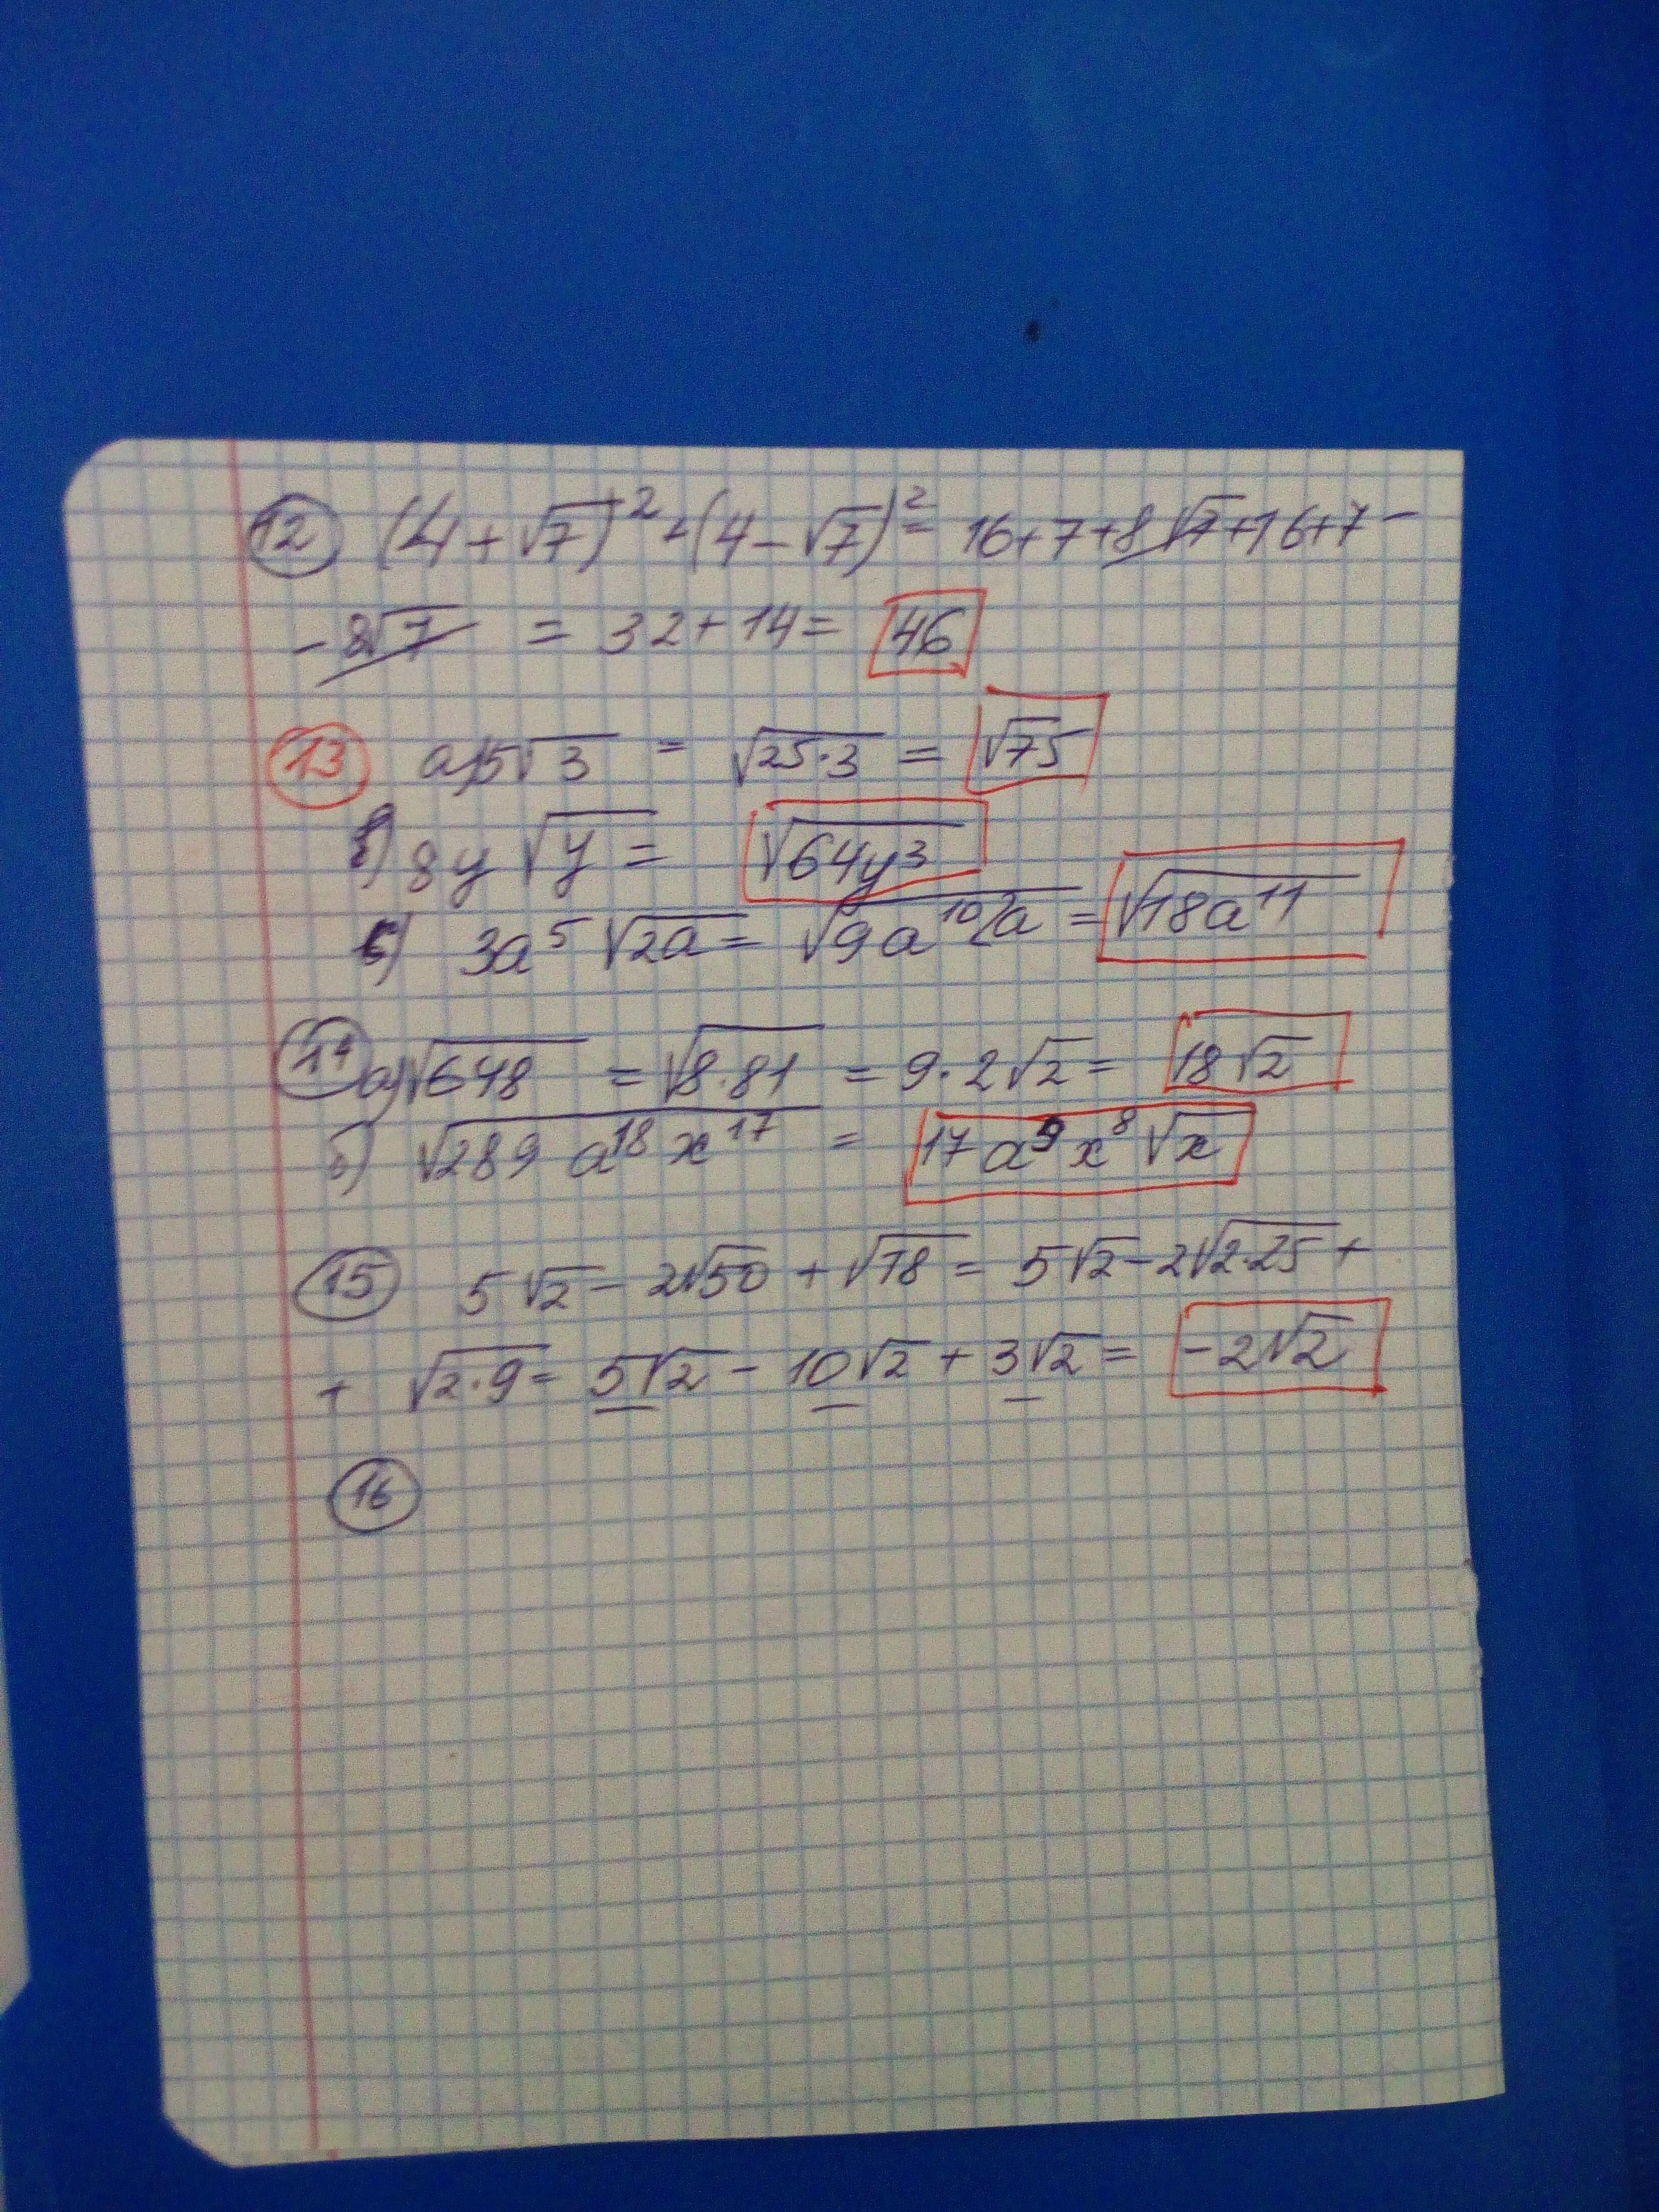 12 (4+√7)²+(4-√7)²= 16+7+8√7+16+7-
-8√7 = 32+14= 46
13 а)5√3 = √25·3 = √75
б) 8y√y = √64y³
в) 3a⁵√2a = √9a¹⁰2a = √18a¹¹
14 а)√648 = √8·81 = 9·2√2 = 18√2
б) √289a¹⁸x¹⁷ = 17a⁹x⁸√x
15 5√2-2√50+√18 = 5√2-2√2·25+
+ √2·9= 5√2-10√2+3√2= -2√2
16